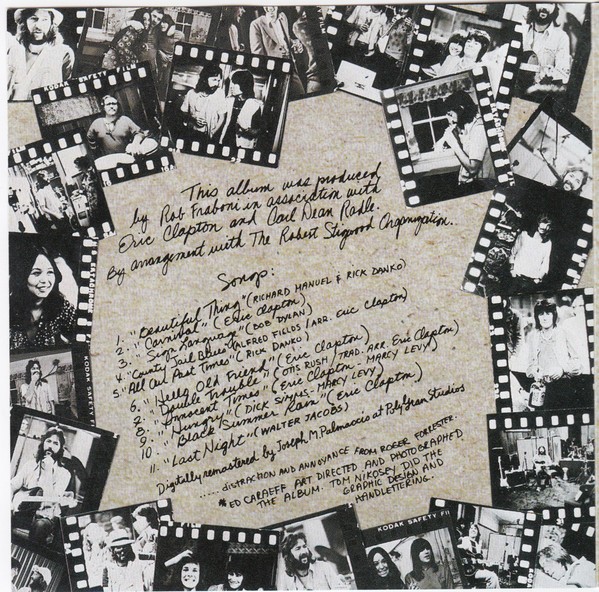 KODAK SAFETY FILM
This album was produced
by Rob Fraboni in association with
Eric Clapton and Carl Dean Radle.
By arrangement with The Robert Stigwood Organization.
Songs:
1. "Beautiful Thing" (RICHARD MANUEL & RICK DANKO)
2. "Carnival" (Eric Clapton)
3. "Sign Language" (BOB DYLAN)
4. "County Jail Blues" (ALFRED FIELDS / ARR. Eric Clapton)
5. "All Our Past Times" (RICK DANKO / Eric Clapton)
6. "Hello Old Friend" (Eric Clapton)
7. "Double Trouble" (OTIS RUSH / TRAD. ARR. Eric Clapton)
8. "Innocent Times" (Eric Clapton - MARCY LEVY)
9. "Hungry" (DICK SIMMS - MARCY LEVY)
10. "Black Summer Rain" (Eric Clapton)
11. "Last Night" (WALTER JACOBS)
Digitally remastered by Joseph M. Palmaccio at PolyGram Studios
..... DISTRACTION AND ANNOYANCE FROM ROGER FORRESTER.
ED CARAEFF ART DIRECTED AND PHOTOGRAPHED
THE ALBUM. TOM NIKOSEY DID THE
GRAPHIC DESIGN AND
HANDLETTERING..
KODAK SAFETY
KODAK SAFETY FI